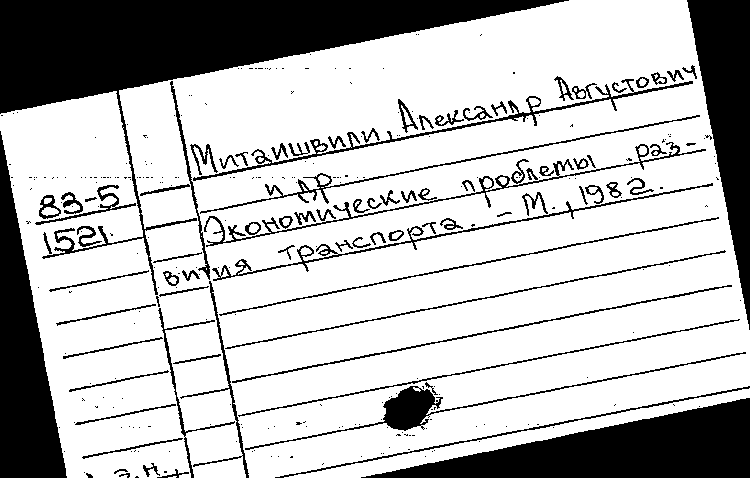 Митаишвили, Александр Августович
и др.
83-5
1521.
Экономические проблемы раз-
вития транспорта. - М., 1982.
э.н.,